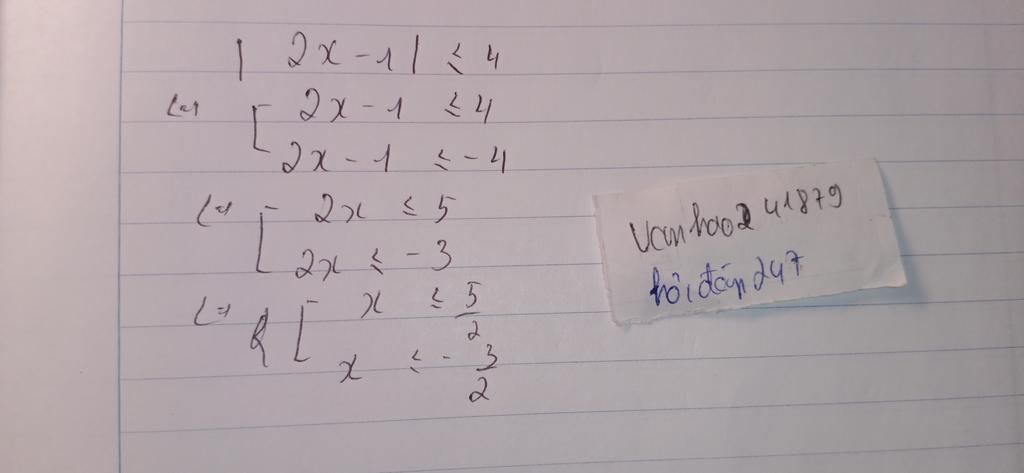 | 2x - 1 | ≤ 4
<=> [ 2x - 1 ≤ 4
2x - 1 ≤ - 4
<=> [ 2x ≤ 5
2x ≤ - 3
<=> [ x ≤ 5/2
x ≤ - 3/2
vanhao241879
hỏi đáp 247